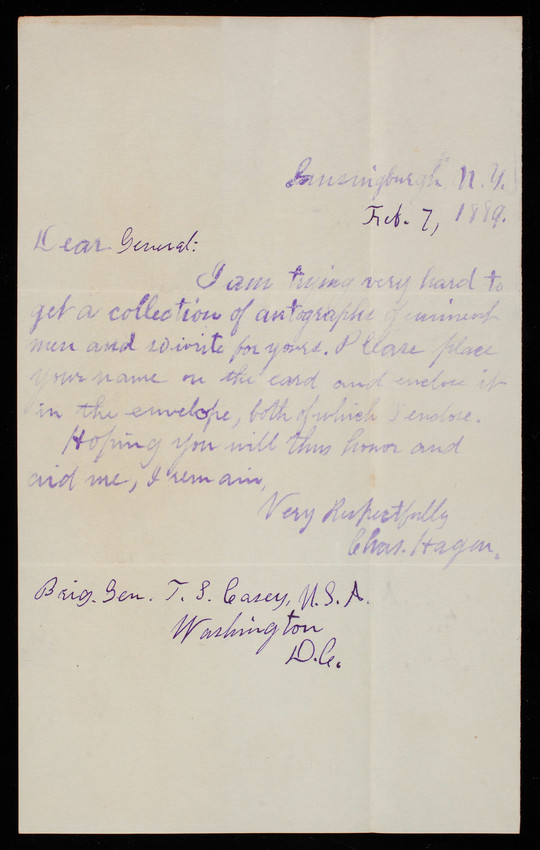 Lansingburgh, N.Y.
Feb. 7, 1889.
Dear General:
I am trying very hard to
get a collection of autographs of eminent
men and so write for yours. Please place
your name on the card and enclose it
in the envelope, both of which I enclose.
Hoping you will thus honor and
aid me, I remain,
Very Respectfully
Chas. Hagen.
Brig. Gen. T. L. Casey, U.S.A.
Washington
D.C.